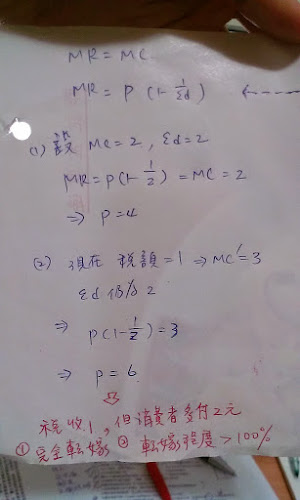 MR = MC
MR = P (1- 1/εd) ←---
(1) 設 MC=2, εd=2
MR=P(1- 1/2) = MC = 2
⇒ P=4
(2) 現在 稅額=1 ⇒ MC'=3
εd 仍為 2
⇒ P(1-1/2)=3
⇒ P=6
⇓
稅收1, 但消費者多付2元
① 完全轉嫁 ② 轉嫁程度 > 100%